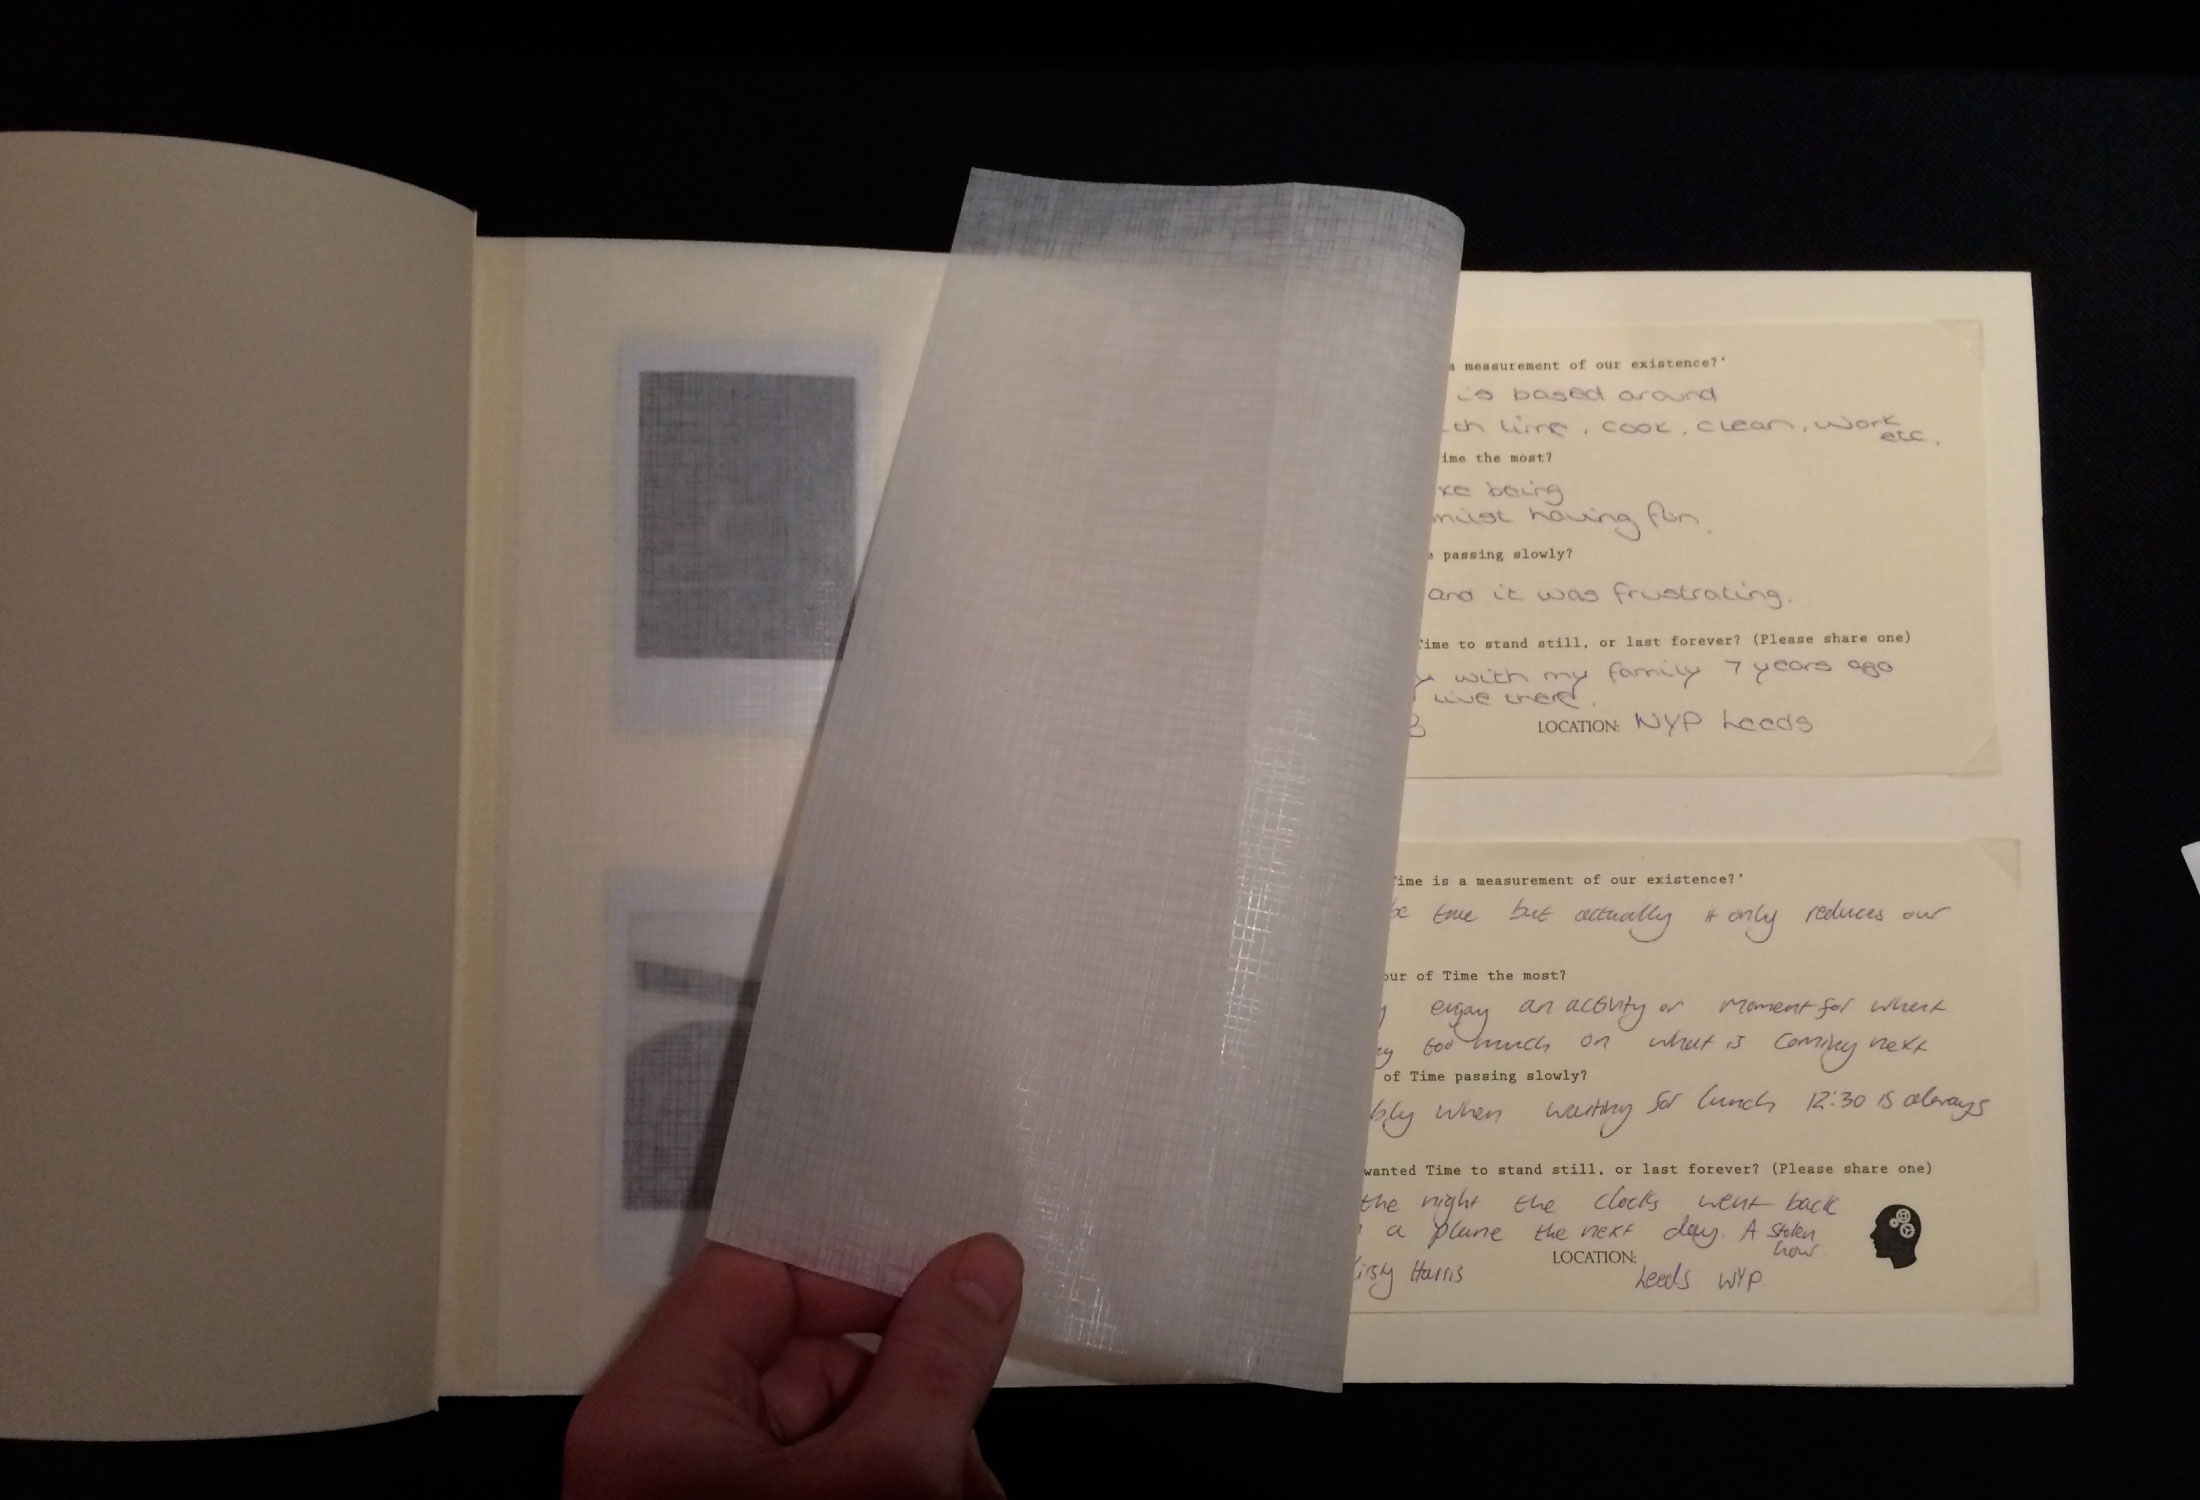 a measurement of our existence?'
is based around
time, cook, clean, work
etc.
ime the most?
being
having fun.
passing slowly?
and it was frustrating.
Time to stand still, or last forever? (Please share one)
with my family 7 years ago
live there.
LOCATION: WYP Leeds
Time is a measurement of our existence?'
be true but actually it only reduces our
our of Time the most?
enjoy an activity or moment for what
too much on what is coming next
of Time passing slowly?
bly when waiting for lunch 12:30 is always
wanted Time to stand still, or last forever? (Please share one)
the night the clocks went back
a plane the next day. A stolen
hour.
LOCATION:
irsty Harris
Leeds WYP